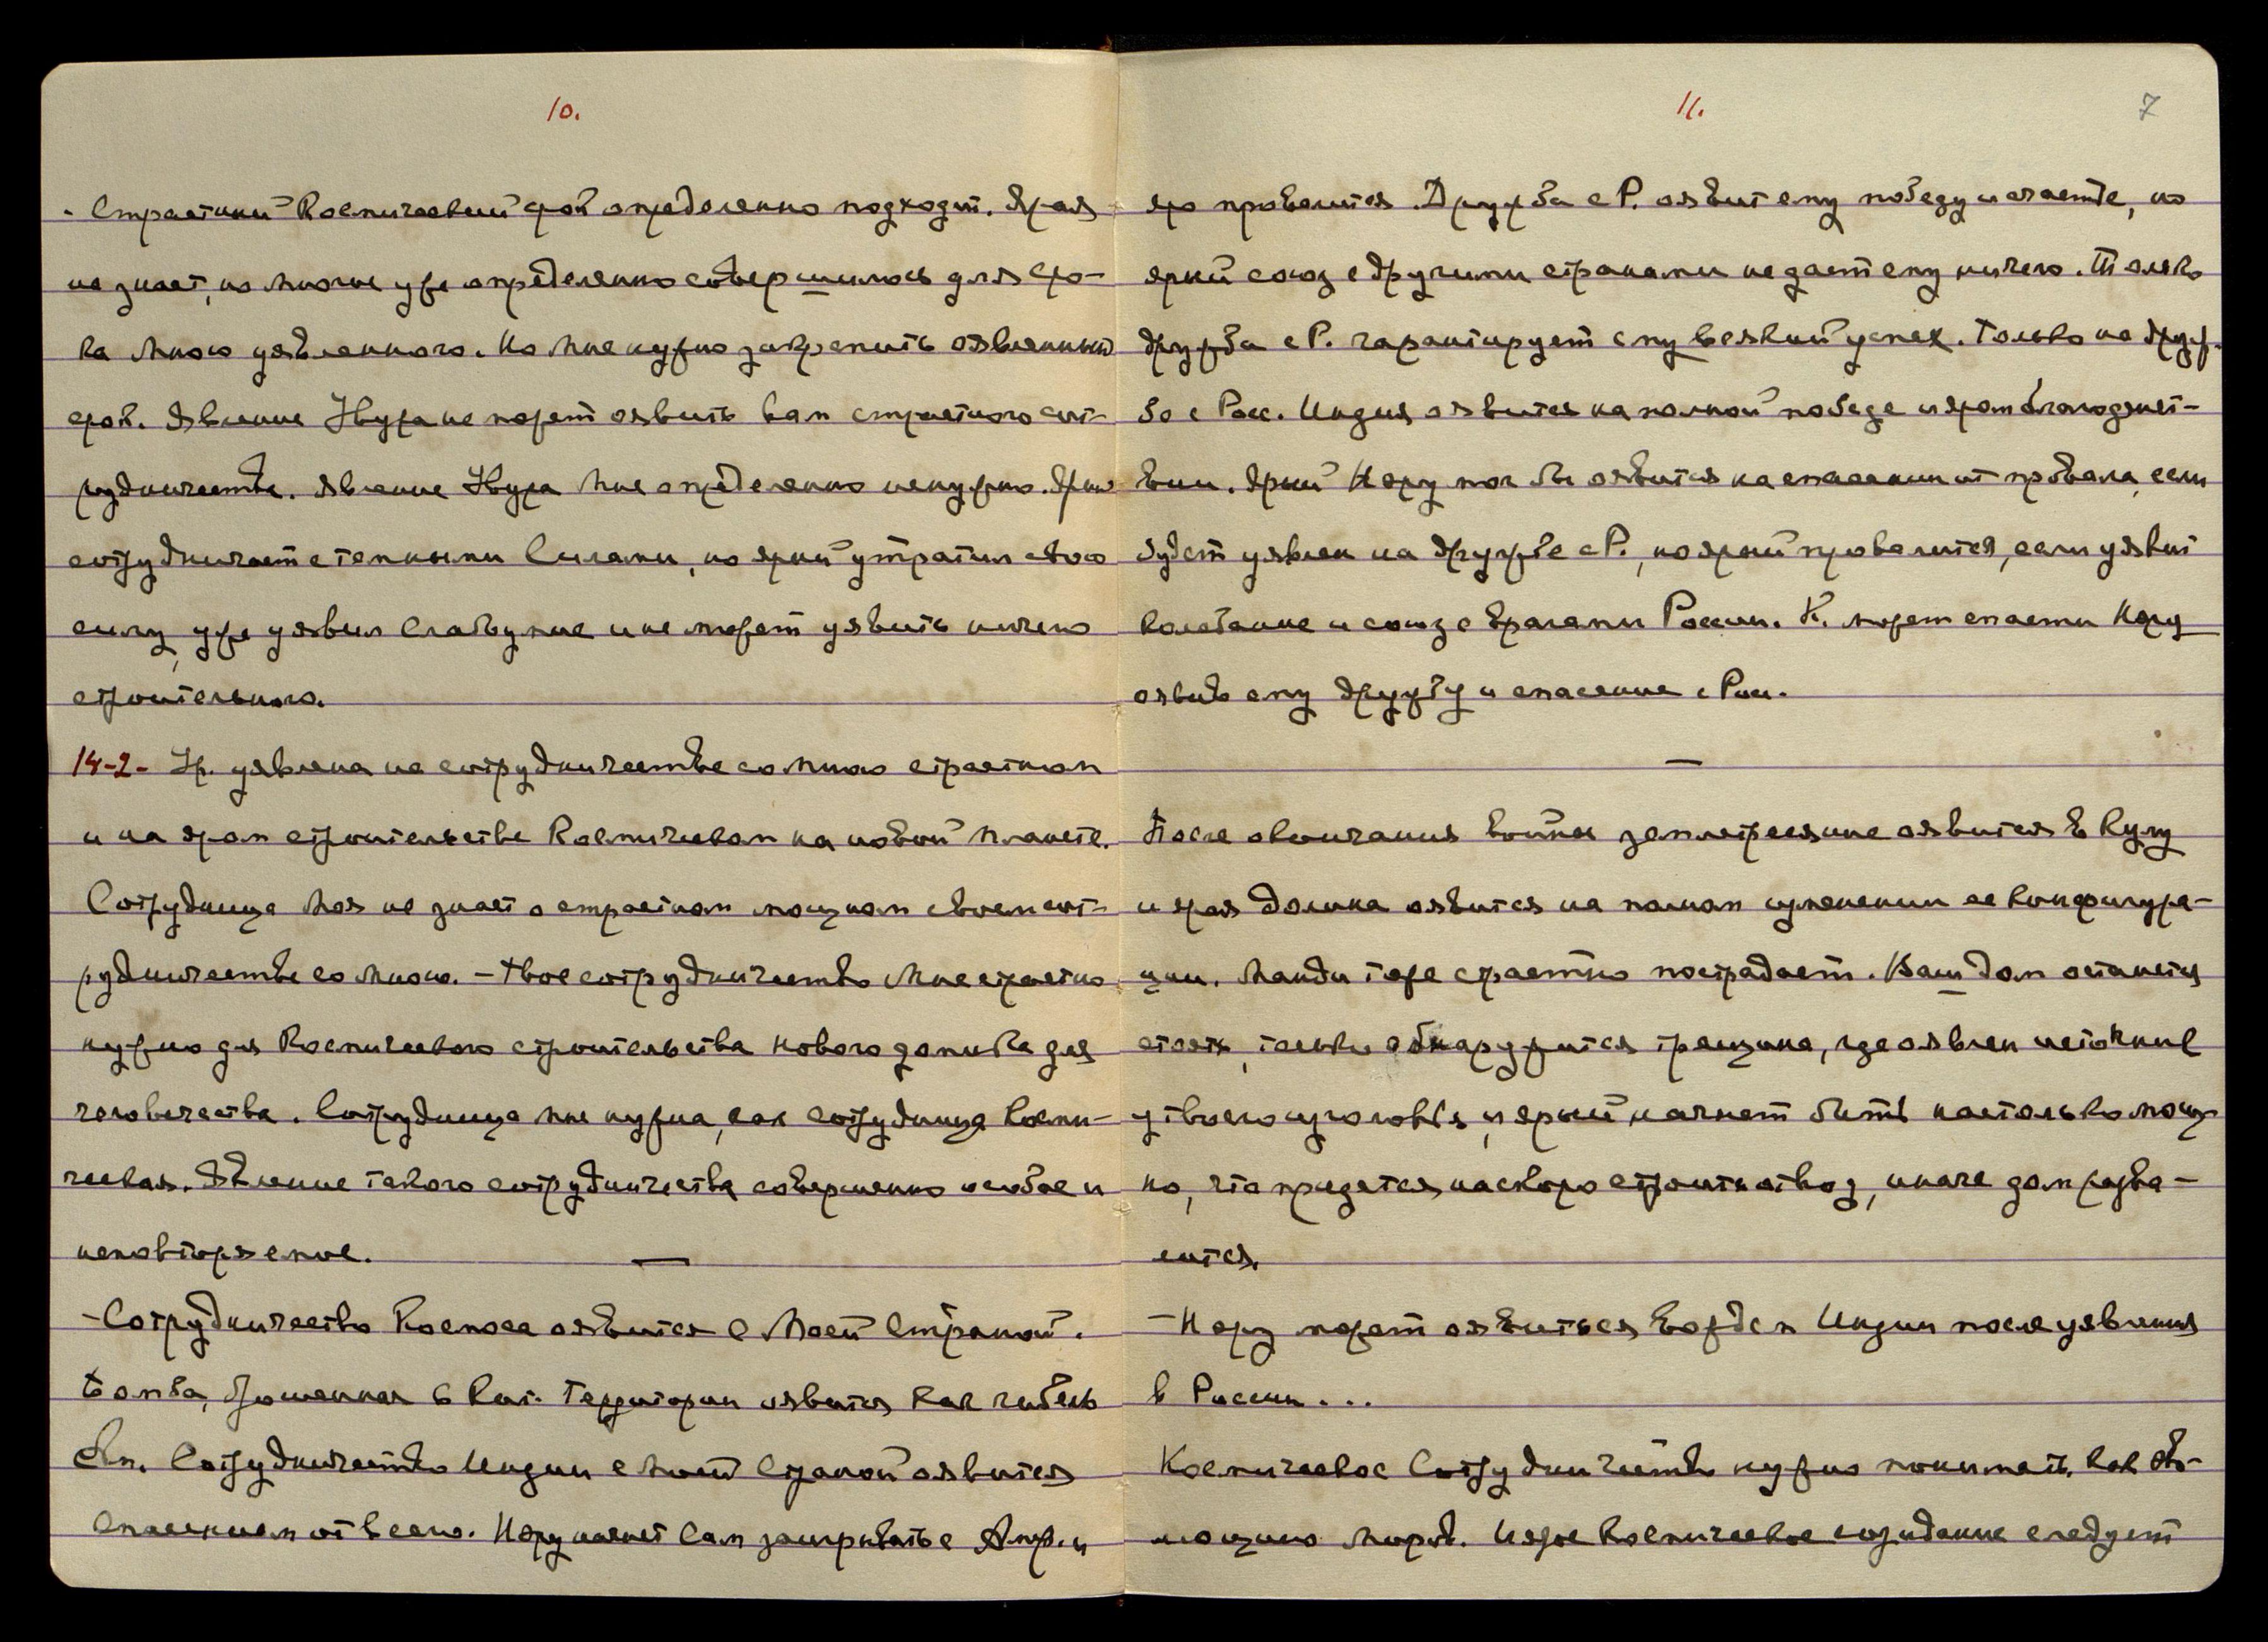 10.
- Страстный Космический срок определенно подходит. Ярая
не знает, но многое уже определенно совершилось для сро-
ка Мною уявленного. Но Мне нужно закрепить оявленный
срок. Явление не может оявить вам страстного сот-
рудничества. Явление Мне определенно ненужно. Ярый
сотрудничает с темными Силами, но ярый утратил свою
силу, уже уявил слабоумие и не может уявить ничего
строительного.
14-2- Ур. уявлена на сотрудничестве со Мною страстном
и на яром строительстве Космическом на новой планете.
Сотрудница Моя не знает о страстном мощном своем сот-
рудничестве со Мною. - Твое сотрудничество Мне страстно
нужно для Космического строительства нового для
человечества. Сотрудница Мне нужна, как сотрудница Косми-
ческая. Явление такого сотрудничества совершенно особое и
неповторяемое. —
- Сотрудничество Космоса оявится с Моей Страной.
Бомба, брошенная в Кит. Территории оявится как гибель
Сотрудничество Индии с Моей Страной оявится
спасением от всего. Неру начнет Сам заигрывать с Амер. и
11. 7
яро провалится. Дружба с Р. оявит ему победу и счастье, но
ярый союз с другими странами не даст ему ничего. Только
дружба с Р. гарантирует ему всякий успех. Только на друж-
бе с Росс. Индия оявится на полной победе и яром благоденст-
вии. Ярый Неру мог бы оявиться на спасении от провала, если
будет уявлен на дружбе с Р., но ярый провалится, если уявит
колебание и союз с врагами России. К. может спасти Неру
оявив ему дружбу и спасение с Росс.
—
После окончания войны землетрясение оявится в Кулу
и ярая долина оявится на полном изменении ее конфигура-
ции. Манди тоже страстно пострадает. Ваш дом останется
стоять, только обнаружится трещина, где оявлен источник
у твоего изголовья, и ярый начнет бить настолько мощ-
но, что придется наскоро строить отвод, иначе дом разва-
лится.
- Неру может оявиться вождем Индии после уявления
в России...
Космическое Сотрудничество нужно понимать, как эво-
люцию Миров. Новое Космическое созидание следует